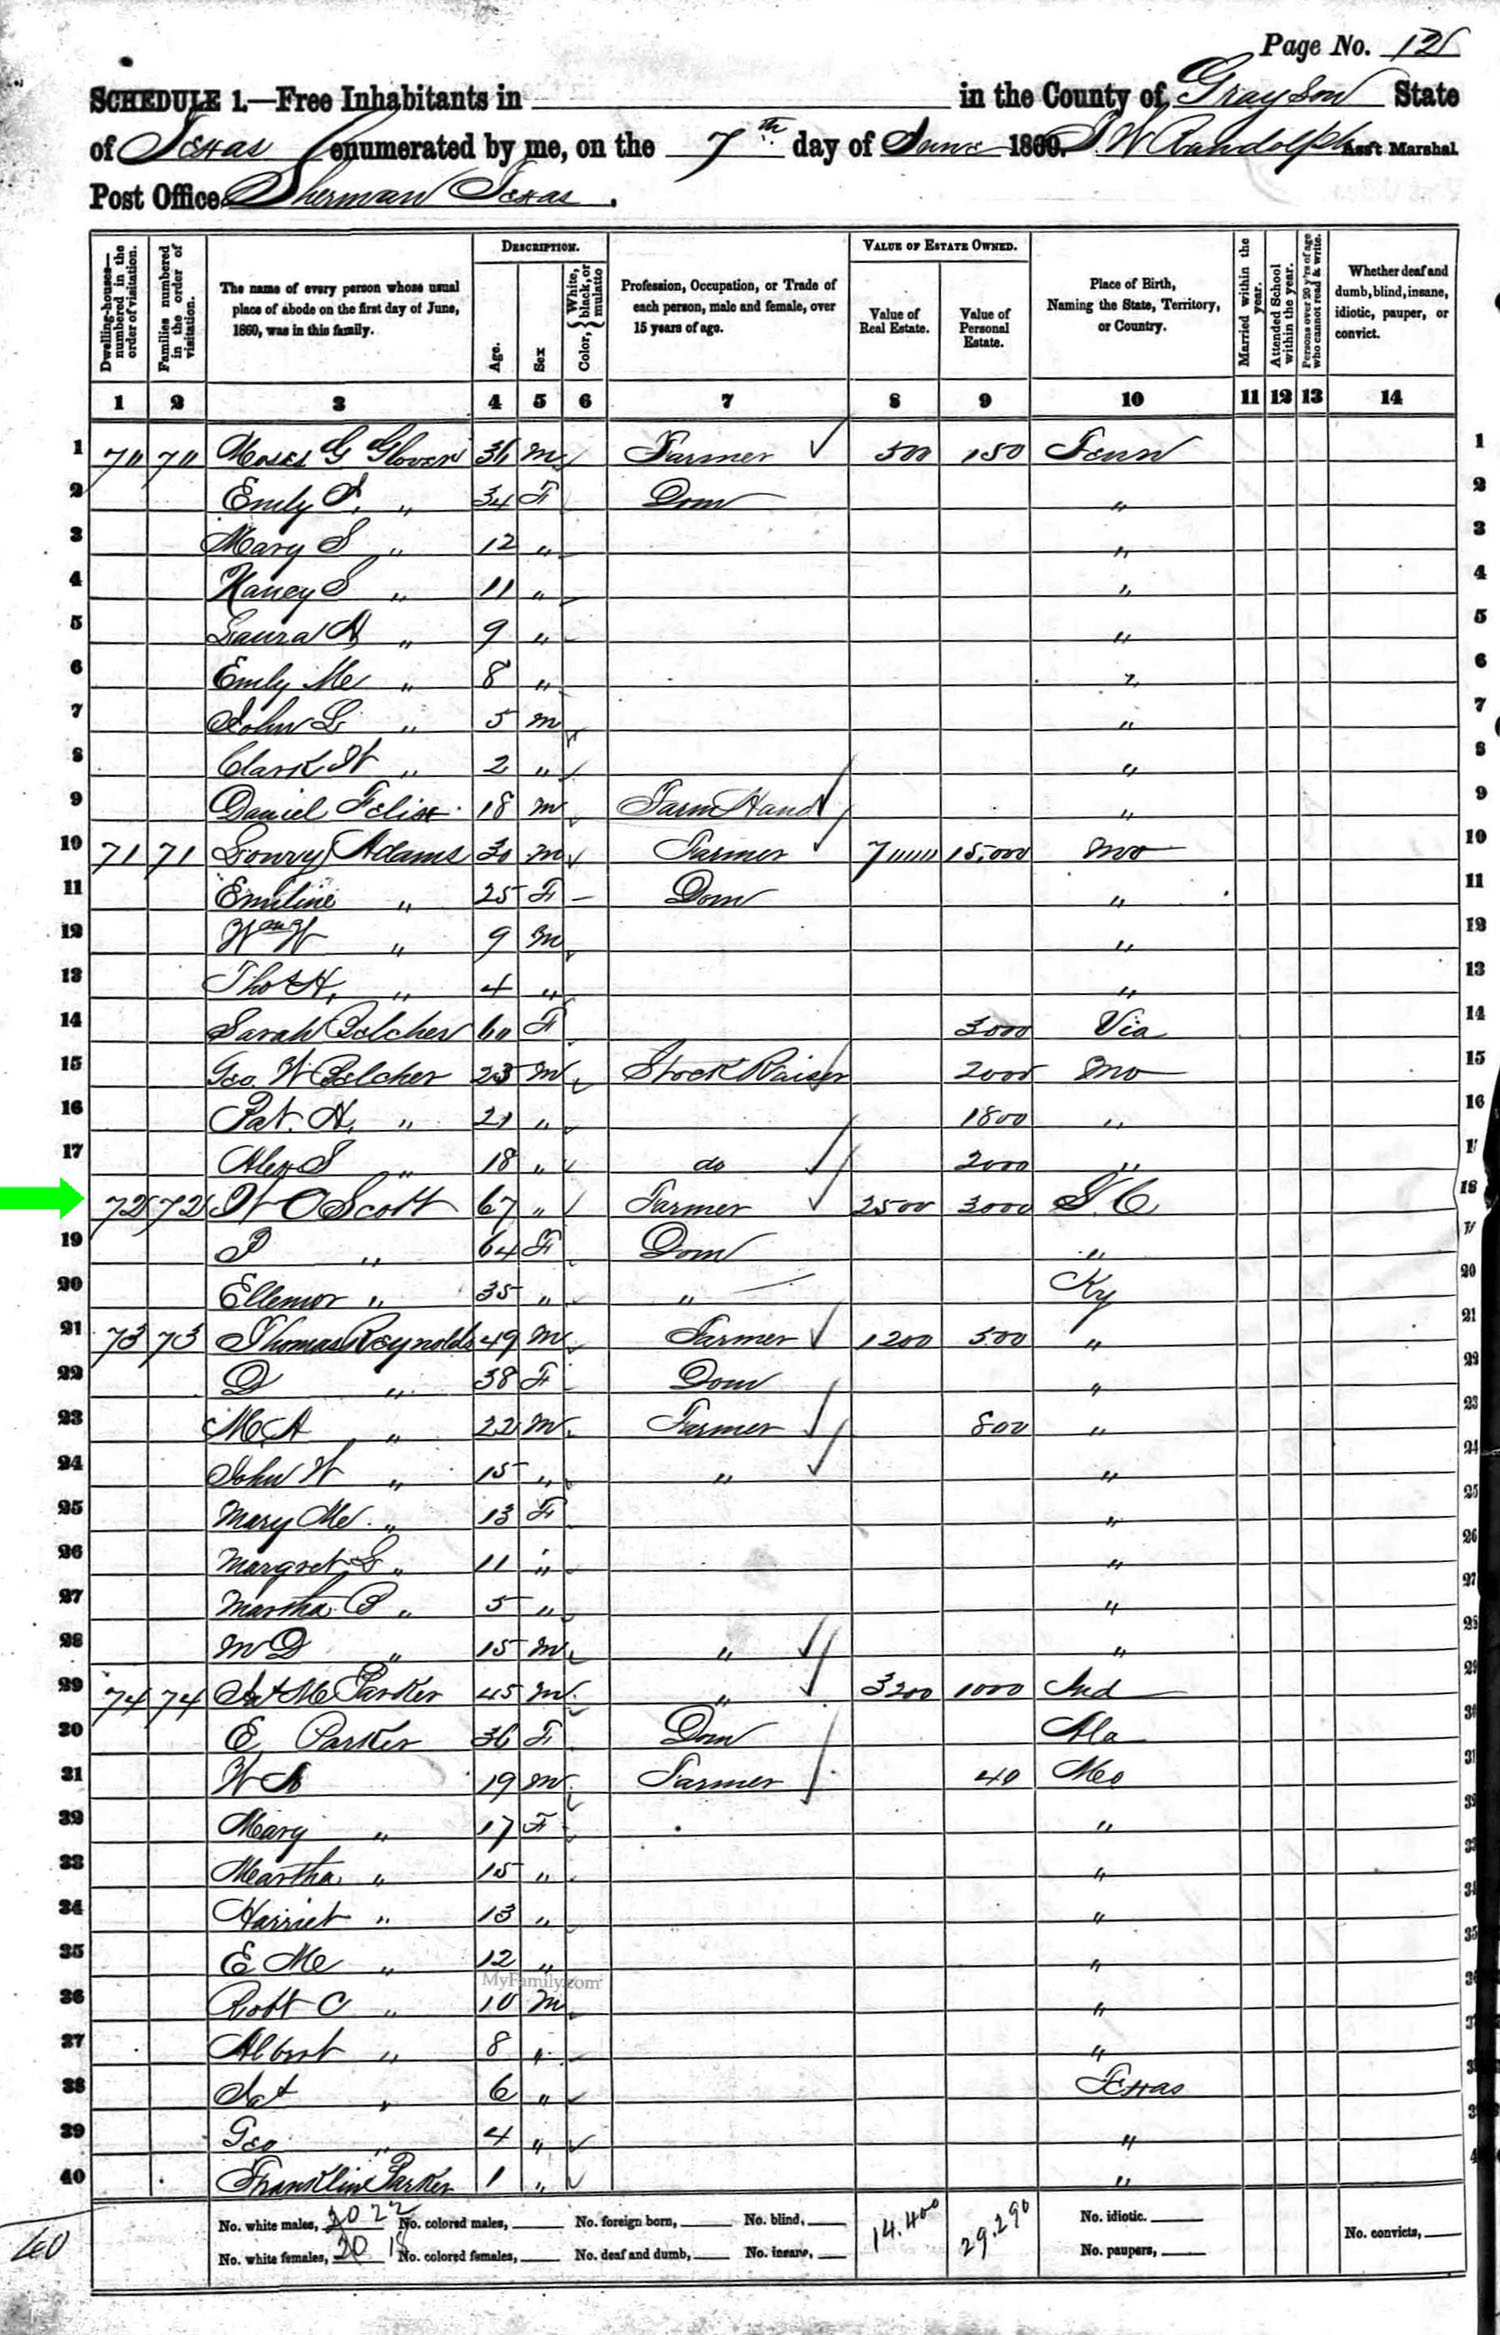 Page No. 12
SCHEDULE 1.—Free Inhabitants in in the County of Grayson State
of Texas enumerated by me, on the 7th day of June 1860. W Randolph Ass't Marshal
Post Office Sherman Texas.
Dwelling-houses—numbered in the order of visitation.
Families numbered in the order of visitation.
The name of every person whose usual place of abode on the first day of June, 1860, was in this family.
DESCRIPTION.
Age.
Sex
Color, {White, black, or mulatto
Profession, Occupation, or Trade of each person, male and female, over 15 years of age.
VALUE OF ESTATE OWNED.
Value of Real Estate.
Value of Personal Estate.
Place of Birth, Naming the State, Territory, or Country.
Married within the year.
Attended School within the year.
Persons over 20 y'rs of age who cannot read & write.
Whether deaf and dumb, blind, insane, idiotic, pauper, or convict.
1 2 3 4 5 6 7 8 9 10 11 12 13 14
1 70 70 Moses G Glover 36 m Farmer 500 150 Tenn 1
2 Emily " 34 F Dom " 2
3 Mary S " 12 " " 3
4 Nancy S " 11 " " 4
5 Laura A " 9 " " 5
6 Emily Mc " 8 " " 6
7 John L " 5 m " 7
8 Clark W " 2 " " 8
9 Daniel Felix 18 m Farm Hand " 9
10 71 71 Lowry Adams 30 m Farmer 7000 15,000 Mo 10
11 Emiline " 25 F Dom " 11
12 Wm W " 9 m " 12
13 Thos H, " 4 " " 13
14 Sarah Belcher 60 F 3000 Via 14
15 Geo. W Belcher 23 m Stock Raiser 2000 Mo 15
16 Pat. H, " 21 " 1800 " 16
17 Alex S " 18 " do 2000 " 17
18 72 72 W C Scott 67 " Farmer 2500 3000 S.C 18
19 P " 64 F Dom "
20 Ellenor " 35 " " Ky 20
21 73 73 Thomas Reynolds 49 m Farmer 1200 500 " 21
22 D " 38 F Dom " 22
23 M A " 22 m Farmer 800 " 23
24 John W " 15 " " " 24
25 Mary Mc " 13 F " 25
26 Margret L " 11 " " 26
27 Martha B " 5 " " 27
28 M D " 15 m " " 28
29 74 74 Nat Mc Parker 45 m " 3200 1000 Ind 29
30 E Parker 36 F Dom Ala
31 W A 19 m Farmer 40 Mo
32 Mary " 17 F "
33 Martha " 15 " "
34 Harriet " 13 " "
35 E Mc " 12 " "
MyFamily.com
36 Robt C " 10 m "
37 Albert " 8 " "
38 Nat " 6 " Texas
39 Geo " 4 " "
40 Frankline Parker 1 " "
No. white males, 20 22 No. colored males, No. foreign born, No. blind, 14.400 29.290 No. idiotic.
No. white females, 20 18 No. colored females, No. deaf and dumb, No. insane, No. paupers, No. convicts,
40